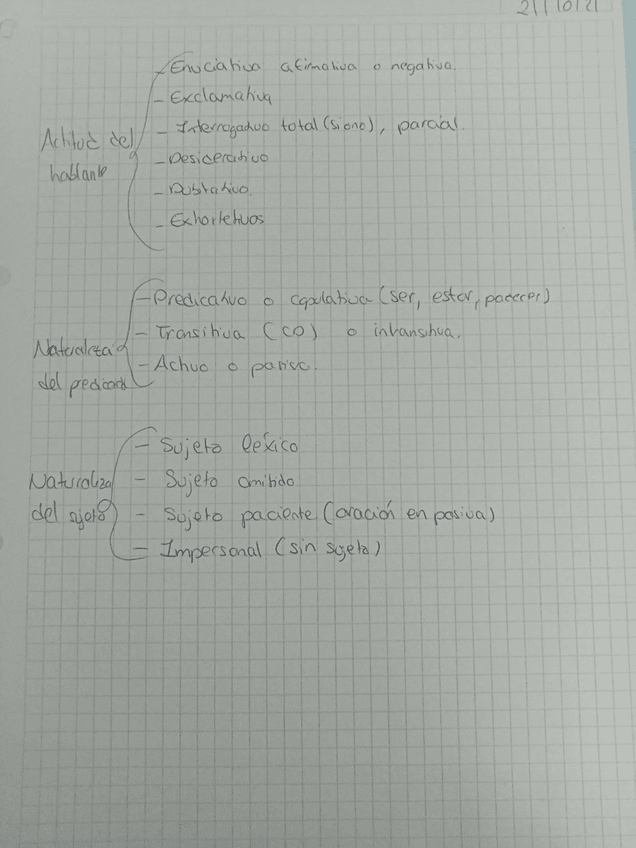 21/10/21
- Enuciativa afirmativa o negativa.
- Exclamativa
- Interrogativo total (si o no), parcial.
Actitud del
- Desiderativo
hablante
- Dubitativo.
- Exhortativos
- Predicativo o copulativa (ser, estar, parecer)
- Transitiva (CD) o intransitiva.
Naturaleza
- Activo o pasivo.
del predicado
- Sujeto léxico
Naturaleza
- Sujeto omitido
del sujeto
- Sujeto paciente (oración en pasiva)
- Impersonal (sin sujeto)